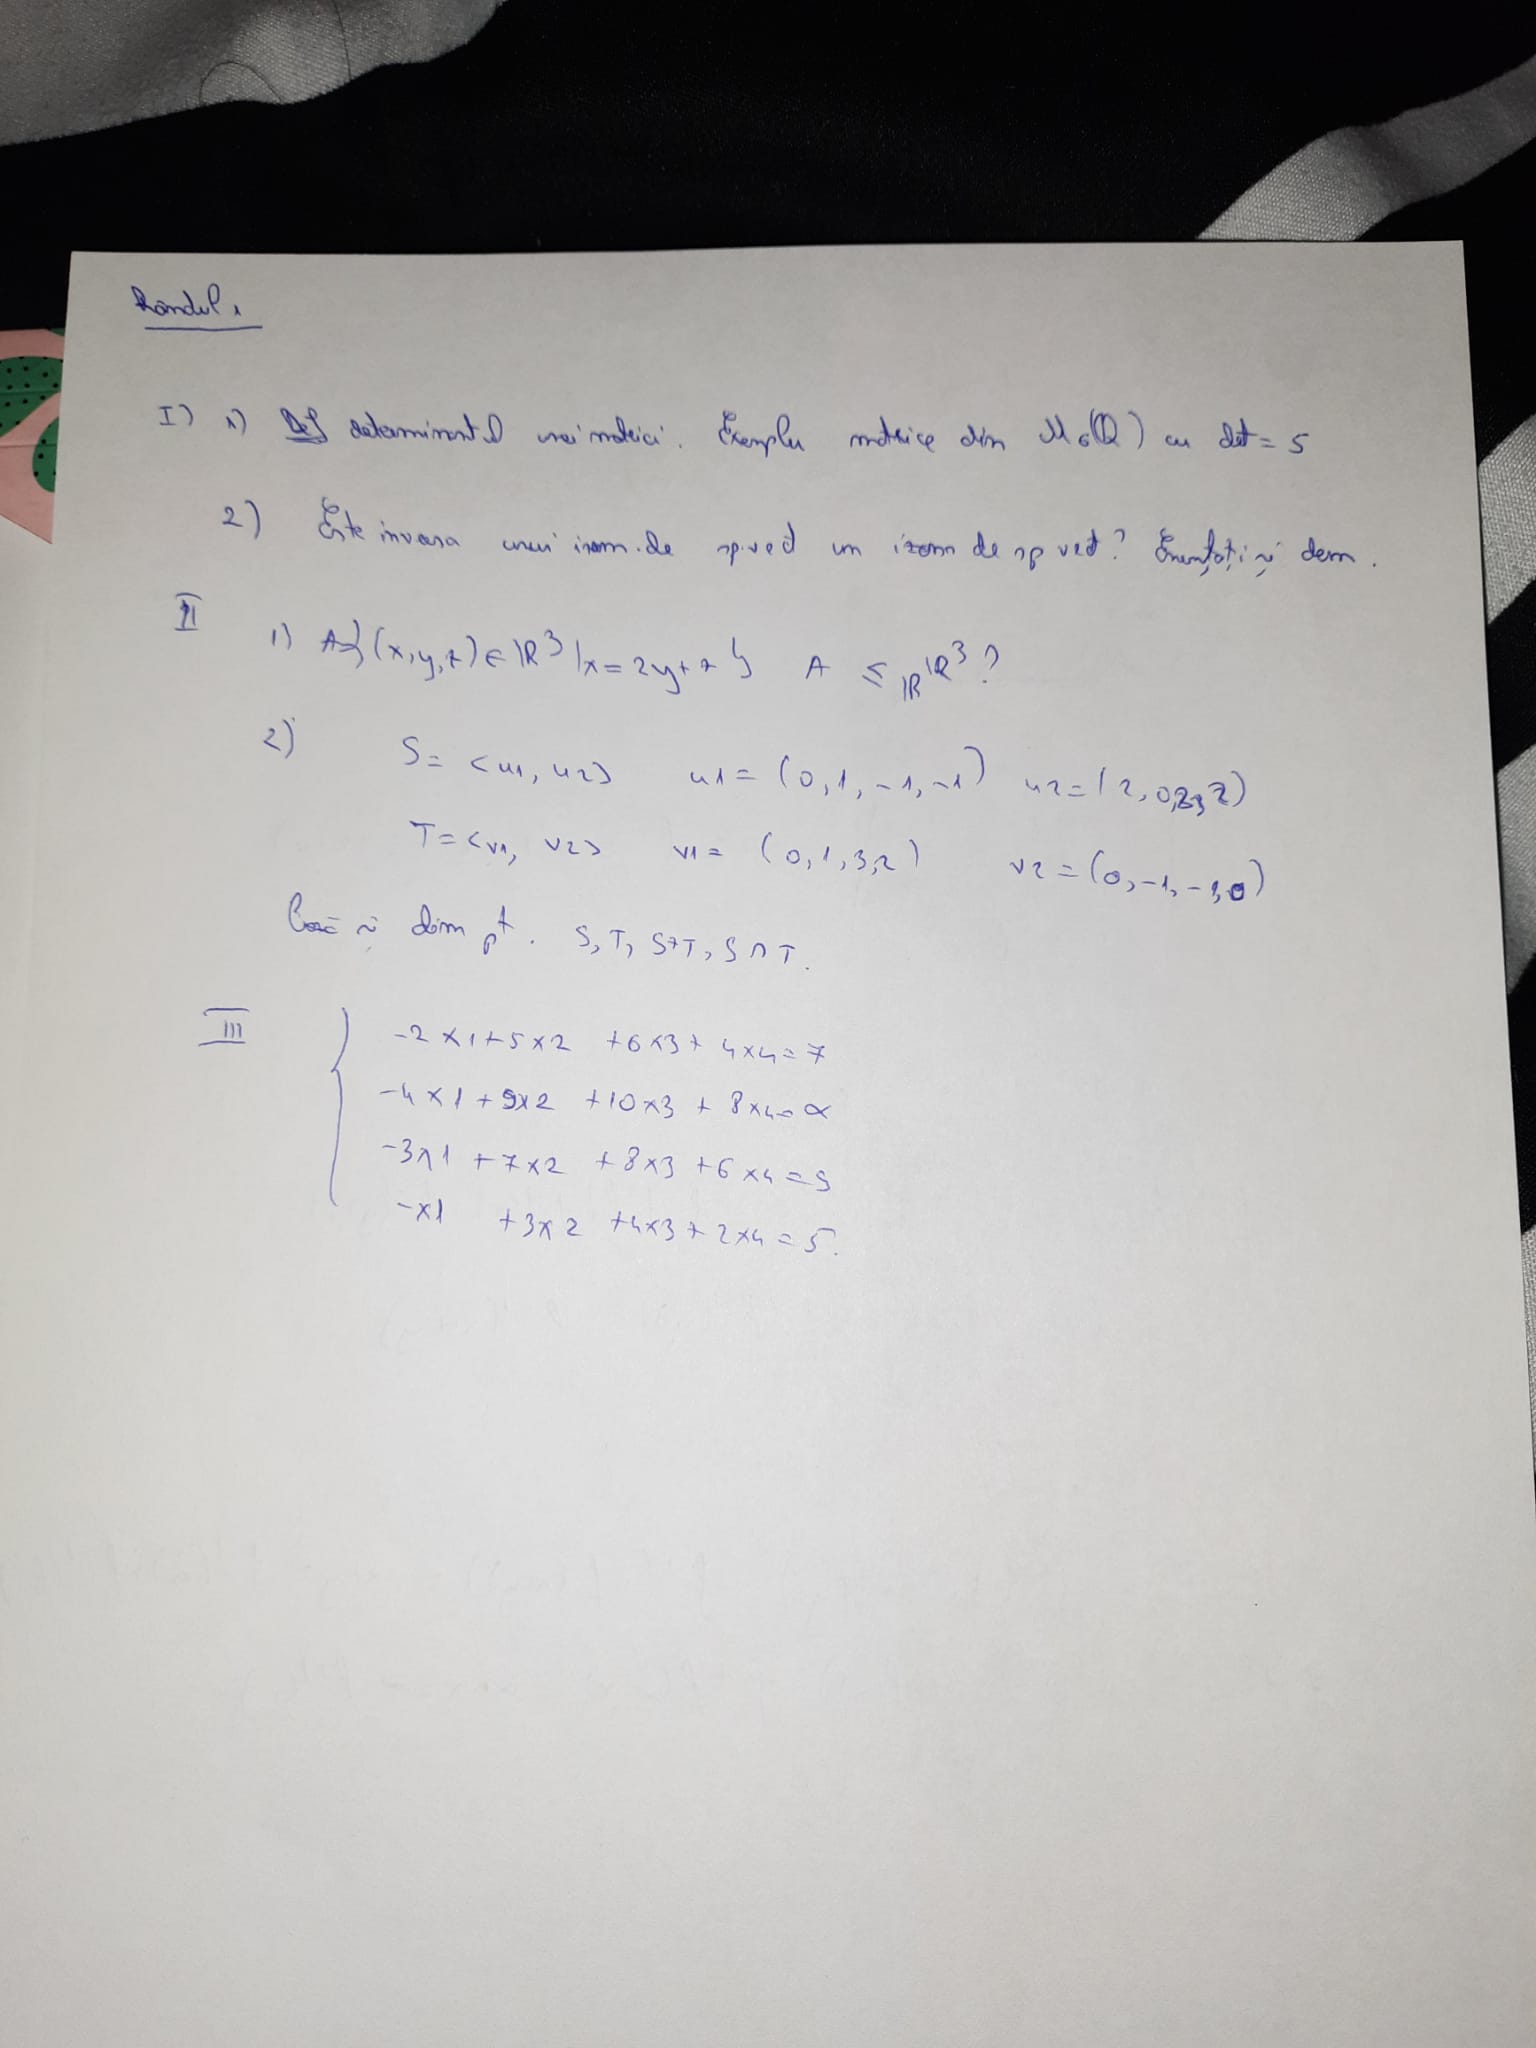 Rândul 1
I) 1) Def determinantul unei matrici. Exemplu matrice din M6(Q) cu det = 5
2) Este inversa unui izom. de sp. vect un izom de sp vect? Enunțați și dem.
II 1) A={(x,y,z)∈ℝ³|x=2y+z} A ≤ℝ ℝ³?
2) S= <u1, u2> u1= (0,1,-1,-1) u2=(2,0,
T=<v1, v2> v1= (0,1,3,2) v2=(0,-1,
Bază și dim pt. S, T, S+T, S∩T.
III -2x1+5x2 +6x3+4x4=7
-4x1+9x2 +10x3+8x4=α
-3x1+7x2 +8x3+6x4=9
-x1 +3x2 +4x3+2x4=5.